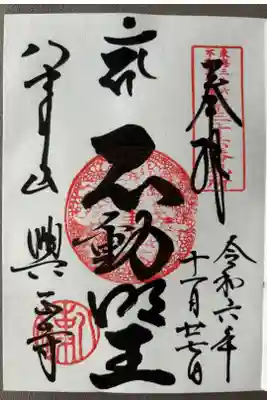 奉拝
令和六年
十一月廿七日
不動明王
八事山 興正寺